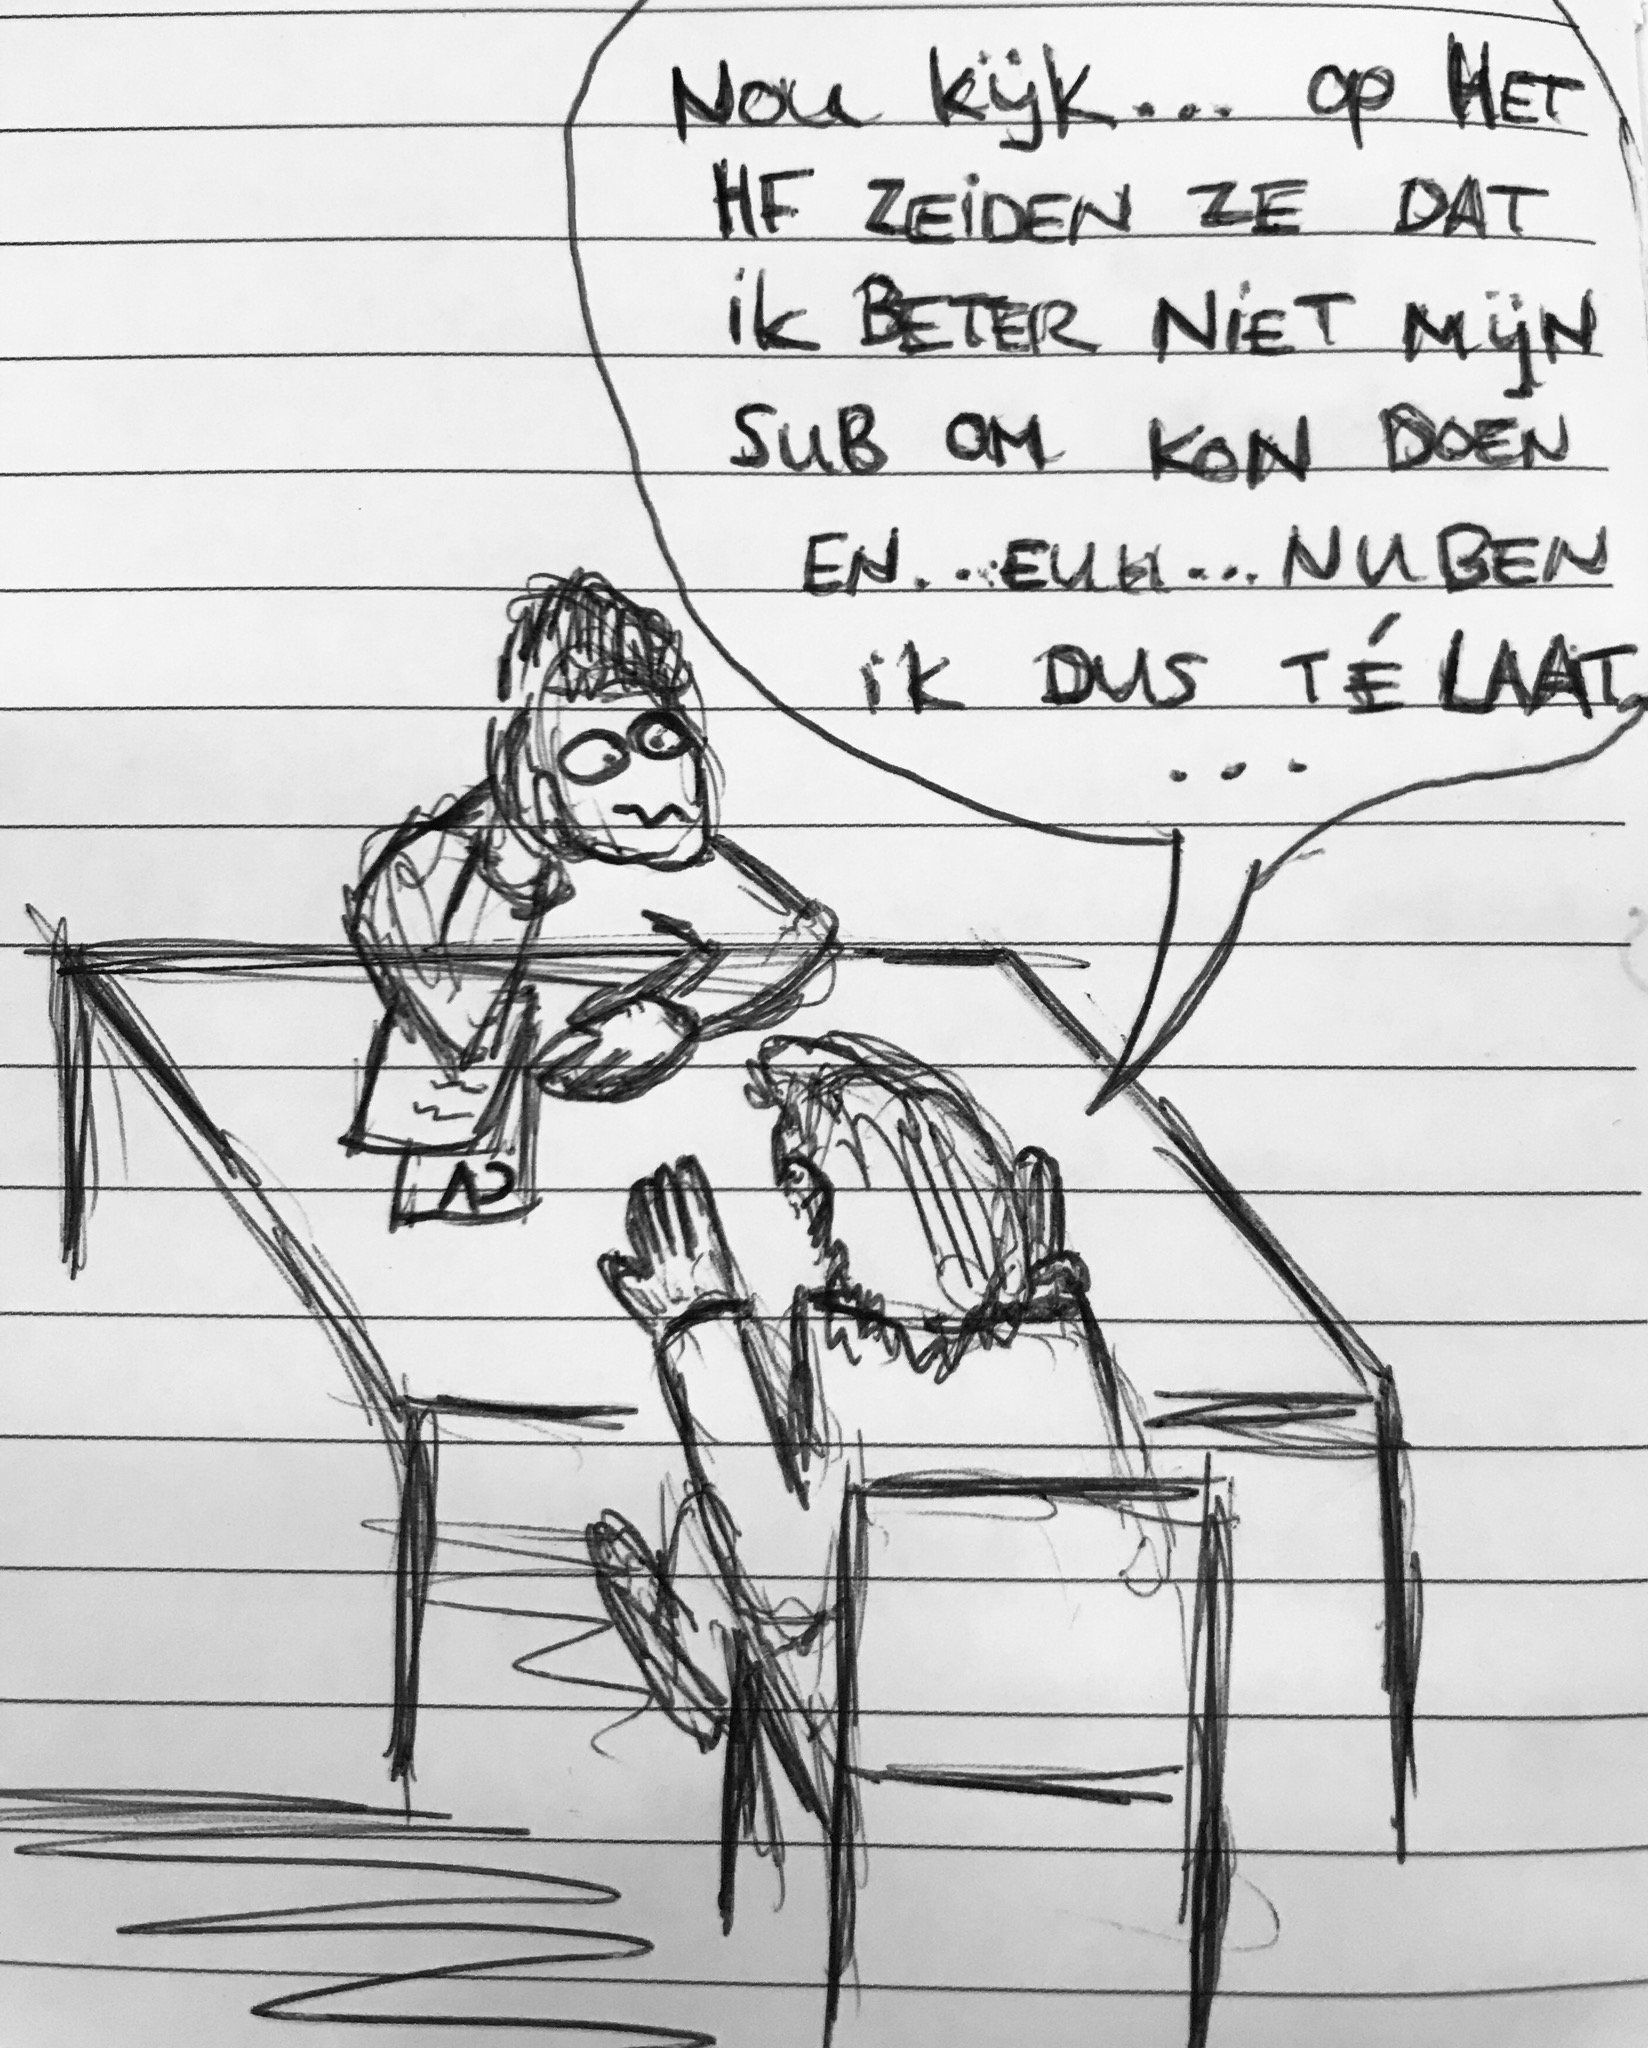 Nou kijk... op HET
HF ZEiDEN ZE DAT
ik BETER NiET Mijn
SUB OM KON DOEN
EN...EUH...NU BEN
ik DUS TÉ LAAT
...